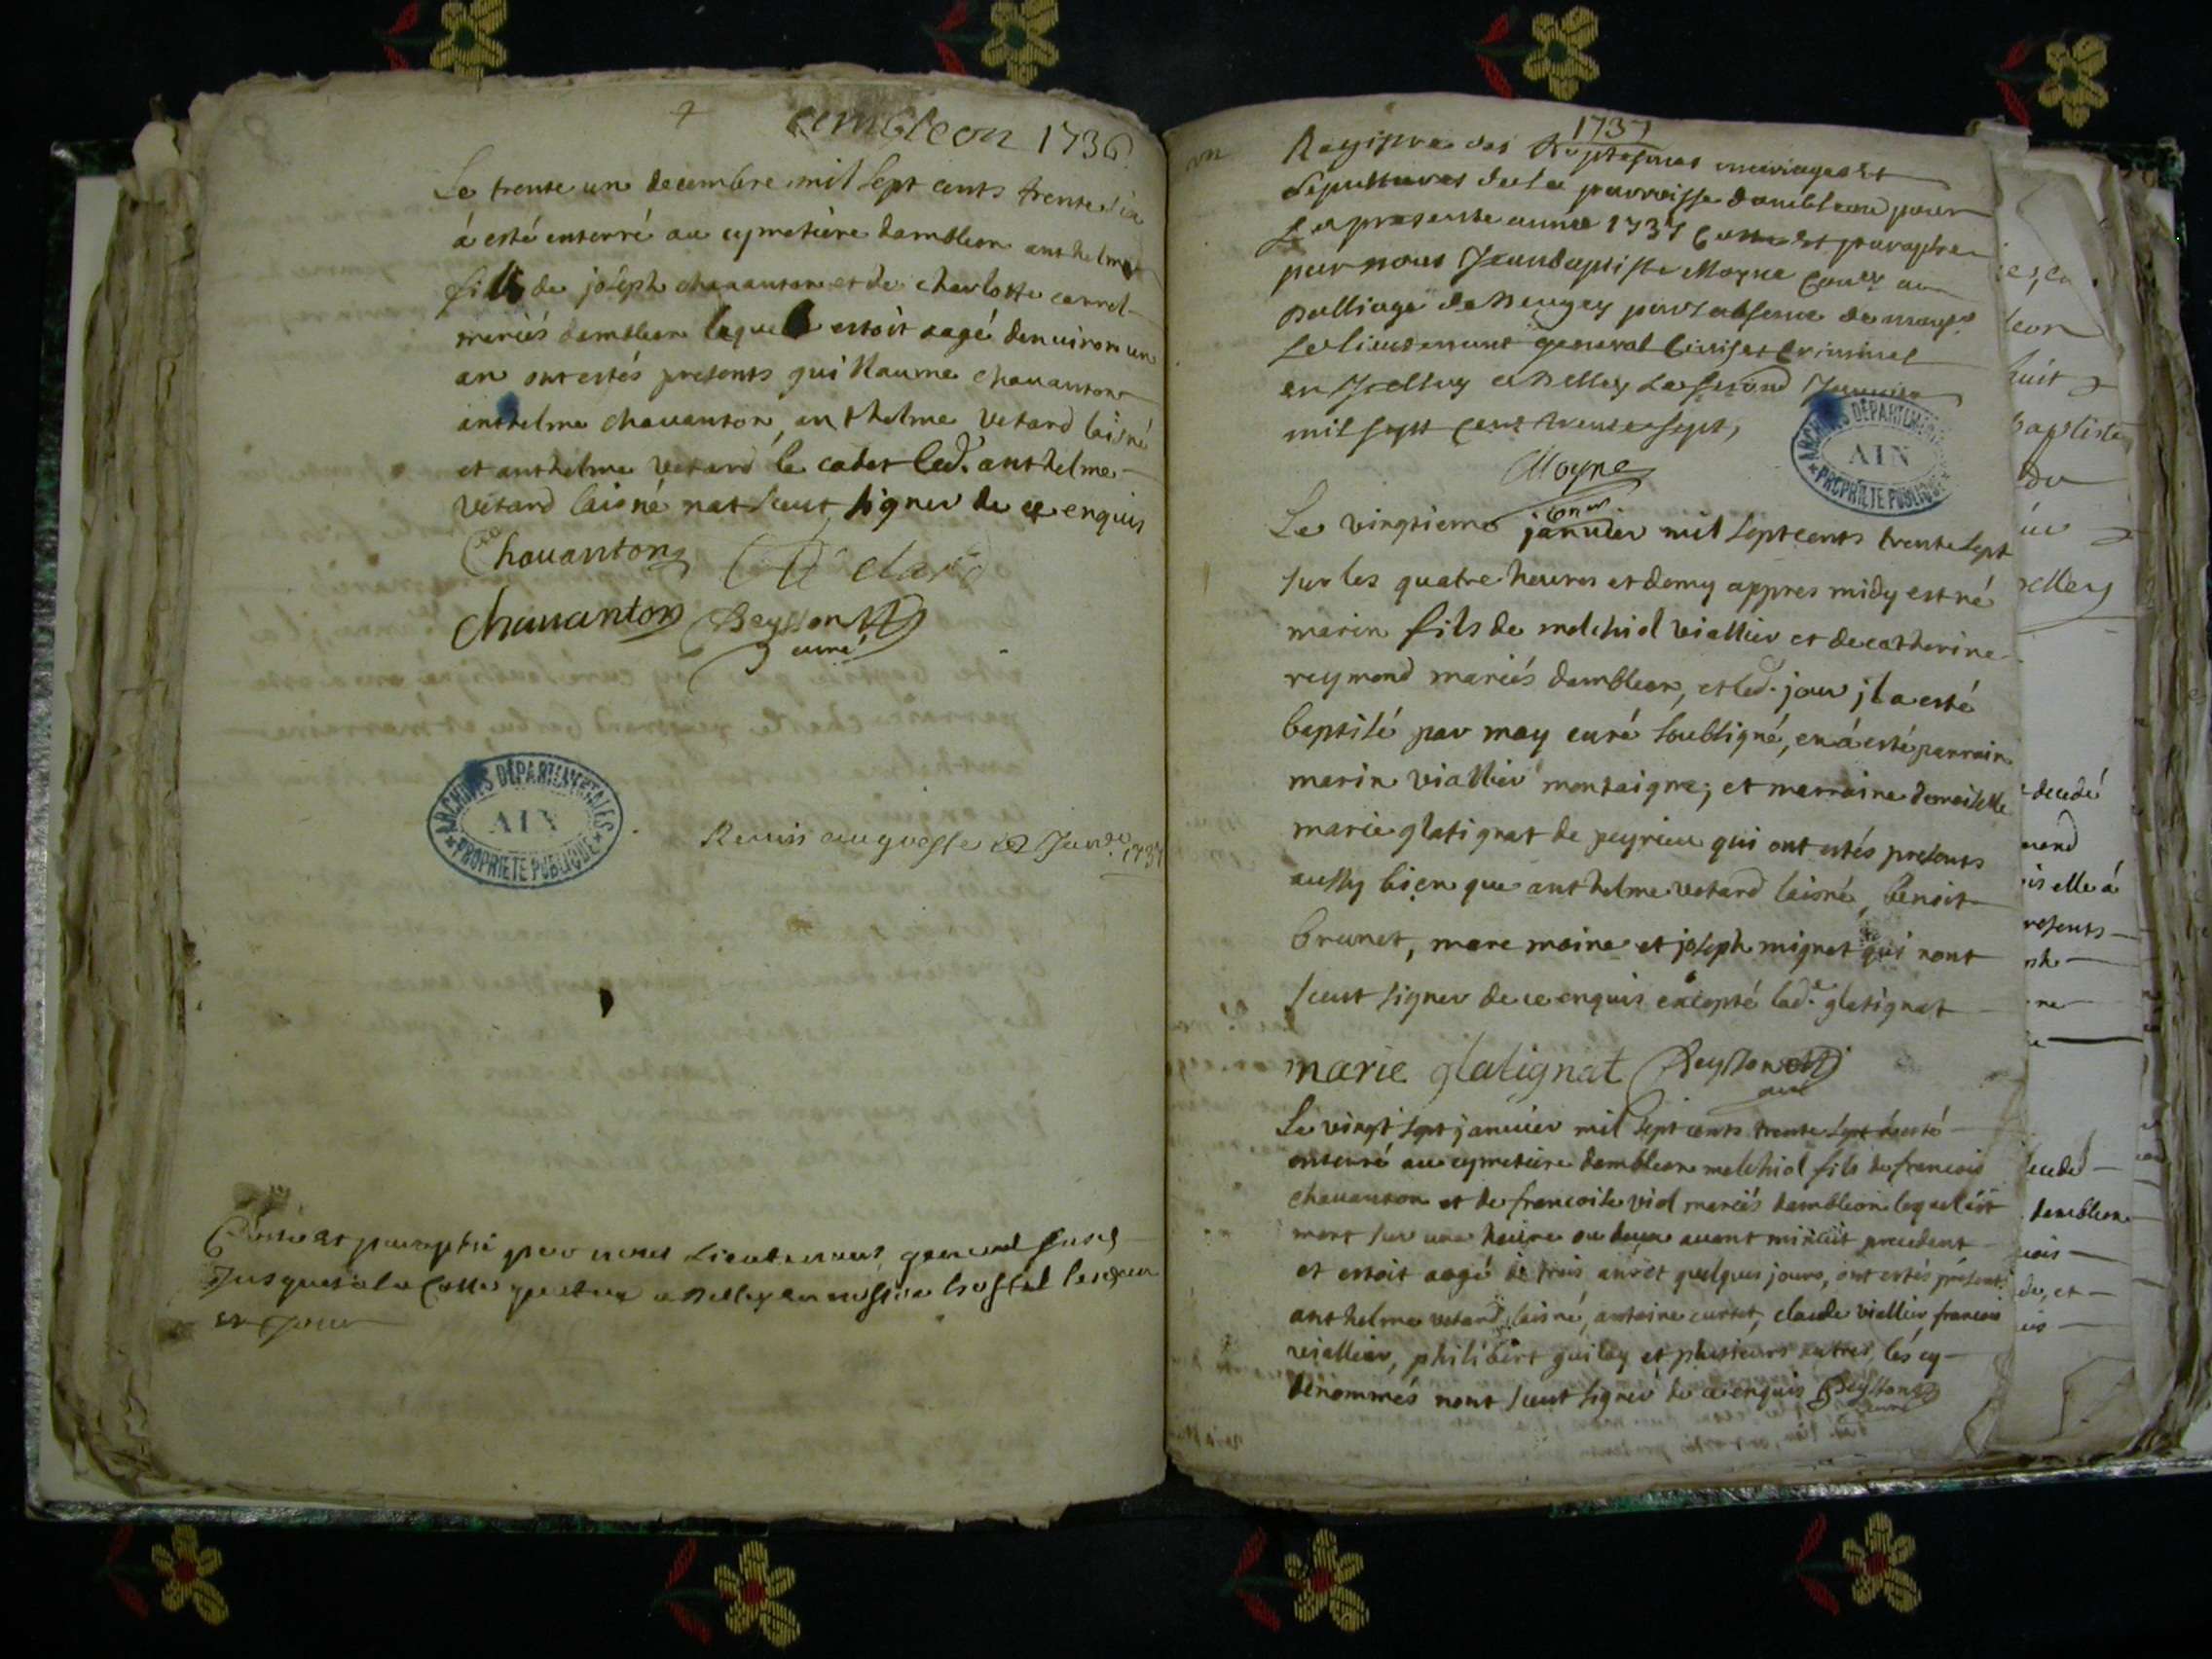 ambleon 1736
Le trente un decembre mil sept cents trente six
á esté enterré au cymetiere dambleon anthelme
fils de joseph chavanton et de charlotte carrel
mariés dambleon lequel estoit aagé denuiron un
an ont estés presents guillaume chauanton
anthelme chauanton, anthelme vetard laisné
et anthelme vetard le cadet led. anthelme
vetard laisné nat sceut signer de ce enquis
Chauanton
chauanton Beysson
curé
ARCHIVES DÉPARTEMENTALES
AIN
PROPRIÉTÉ PUBLIQUE
Remis au greffe 1737
Cotté et paraphé par nous Lieutenant general
jusques a la cotte a Belley en nostre hostel
et jour
1737
Registre des Baptesmes mariages et
sepultures de la parroisse dambleon pour
La presente année 1737 Cotté et paraphé
par nous Jean Baptiste Moyne Coner au
Balliage de Beugey pour l'absence de
Le lieutenant general Civil et Criminel
en Icelluy a Belley Le second Januier
mil sept cent trente sept,
Moyne
coner
ARCHIVES DÉPARTEMENTALES
AIN
PROPRIÉTÉ PUBLIQUE
Le vingtieme januier mil sept cents trente sept
sur les quatre heures et demy appres midy est né
marin fils de melchiol viallier et de catherine
reymond mariés dambleon, et led. jour jl a esté
baptisé par moy curé soubligné, en á esté parrain
marin viallier montaigne; et marraine demoiselle
marie glatignat de peyrieu qui ont estés presents
aussy bien que anthelme vetard laisné, benoit
brunet, marc moine et joseph mignet qui nont
sceut signer de ce enquis excepté lad.e glatignat
marie glatignat Beysson
curé
Le vingt sept januier mil sept cents trente sept á esté
enterré au cymetiere dambleon melchiol fils de francois
chauanton et de francoise viol mariés dambleon lequel est
mort sur une heure ou deux auant minuit precedent
et estoit aagé de trois ans et quelques jours, ont estés présents
anthelme vetard laisné, antoine curtet, claude viallier, francois
viallier, philibert guiley et plusieurs autres, les cy
denommés nont sceut signer de ce enquis Beysson
curé